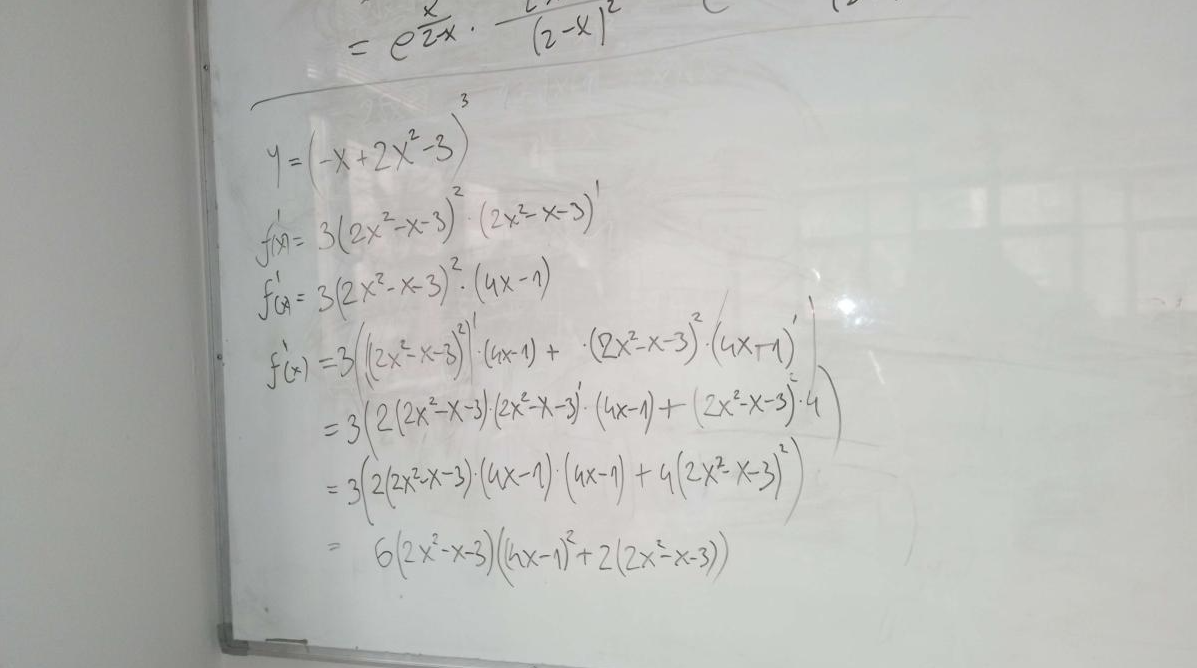 = e^(x/(2-x)) · /(2-x)²
y = (-x+2x²-3)³
f'(x) = 3(2x²-x-3)² · (2x²-x-3)'
f'(x) = 3(2x²-x-3)² · (4x-1)
f'(x) = 3((2x²-x-3)²)' · (4x-1) + · (2x²-x-3)² · (4x-1)')
= 3(2(2x²-x-3) · (2x²-x-3)' · (4x-1) + (2x²-x-3)² · 4)
= 3(2(2x²-x-3) · (4x-1) · (4x-1) + 4(2x²-x-3)²)
= 6(2x²-x-3)((4x-1)² + 2(2x²-x-3))